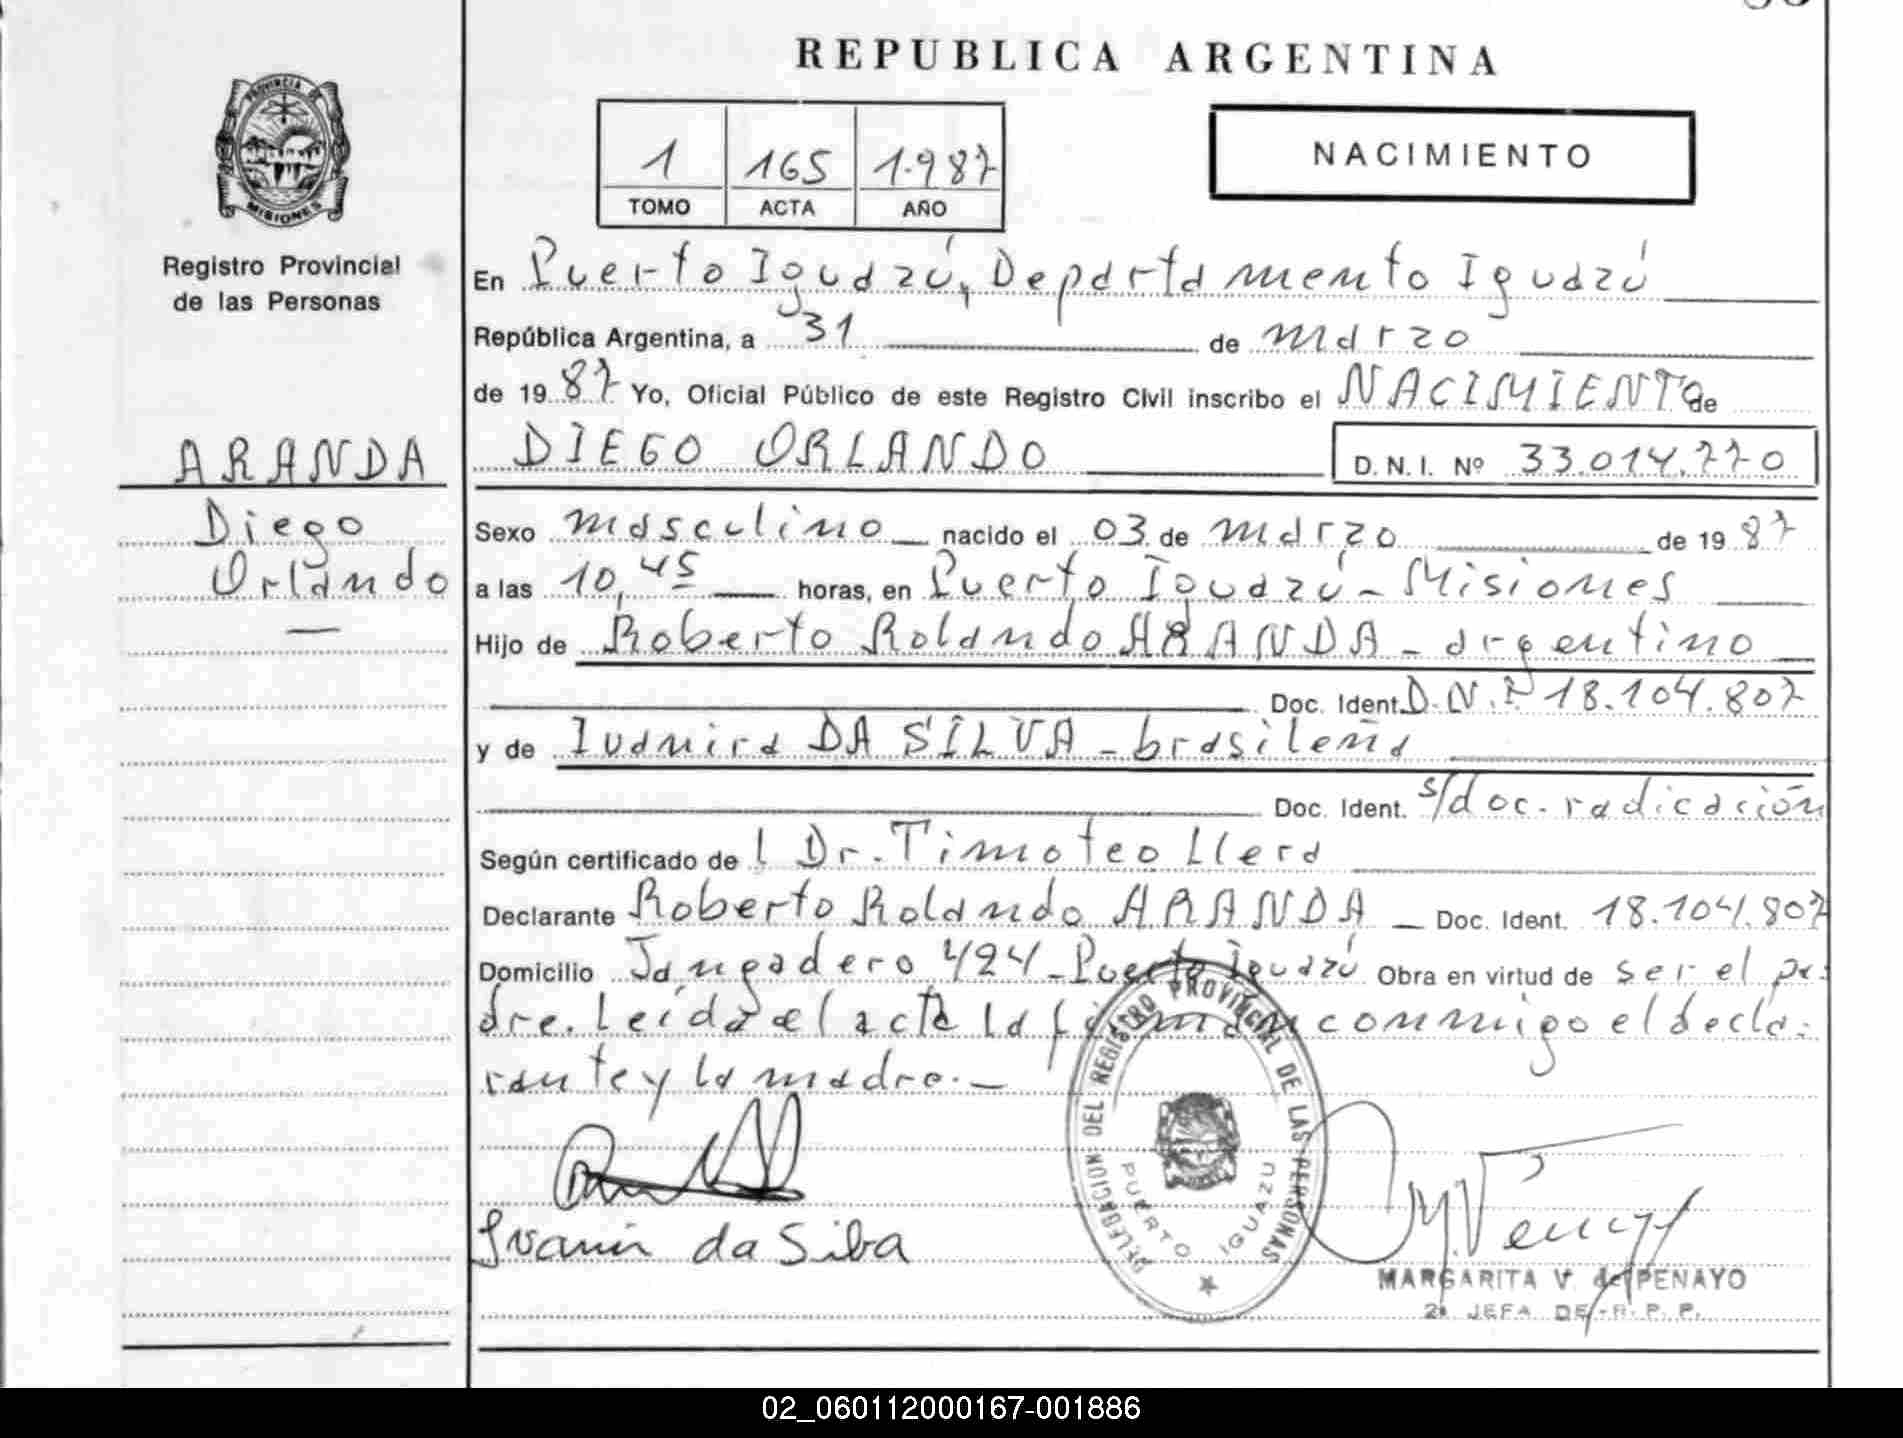 REPUBLICA ARGENTINA
PROVINCIA DE
MISIONES
Registro Provincial
de las Personas
1 165 1.987
TOMO ACTA AÑO
NACIMIENTO
En Puerto Iguazú, Departamento Iguazú
República Argentina, a 31 de marzo
de 1987 Yo, Oficial Público de este Registro Civil inscribo el NACIMIENTO de
ARANDA
DIEGO ORLANDO D.N.I. Nº 33.014.770
Diego
Orlando
Sexo masculino nacido el 03 de marzo de 1987
a las 10,45 horas, en Puerto Iguazú - Misiones
Hijo de Roberto Rolando ARANDA - argentino
Doc. Ident. D.N.I. 18.104.807
y de Ivanira DA SILVA - brasileña
Doc. Ident. s/doc. radicación
Según certificado de l Dr. Timoteo Llera
Declarante Roberto Rolando ARANDA Doc. Ident. 18.104.807
Domicilio Jangadero 424 - Puerto Iguazú Obra en virtud de ser el pa-
dre. Leída el acta la firman conmigo el decla-
rante y la madre.-
DELEGACION DEL REGISTRO PROVINCIAL DE LAS PERSONAS
PUERTO IGUAZU
da Silva
MARGARITA V. de PENAYO
2a JEFA DE R. P. P.
02_060112000167-001886